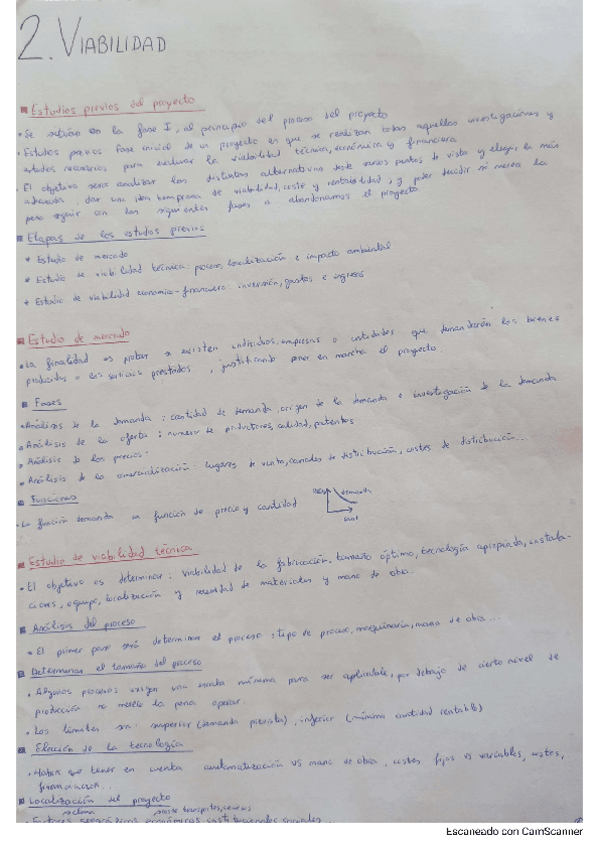 2. VIABILIDAD
Estudios previos del proyecto
• Se sitúan en la fase I, al principio del proceso del proyecto
• Estudios previos fase inicial de un proyecto en que se realizan todas aquellas investigaciones y
estudios necesarios para evaluar la viabilidad técnica, económica y financiera
• El objetivo será analizar las distintas alternativas desde varios puntos de vista y elegir la más
adecuada, dar una idea de viabilidad, coste y rentabilidad, y poder decidir si merece la
pena seguir con las siguientes fases o abandonamos el proyecto
Etapas de los estudios previos
* Estudio de mercado
* Estudio de viabilidad técnica: proceso, localización e impacto ambiental
* Estudio de viabilidad económica-financiera: inversión, gastos e ingresos
Estudio de mercado
• La finalidad es probar si existen individuos, empresas o entidades que demandarán los bienes
producidos o los servicios prestados, justificando poner en marcha el proyecto.
Fases
• Análisis de la demanda: cantidad de demanda, origen de la demanda e investigación de la demanda
• Análisis de la oferta: número de productores, calidad, patentes
• Análisis de los precios
• Análisis de la comercialización: lugares de venta, canales de distribución, costes de distribución...
Funciones
• La función demanda en función de precio y cantidad
demanda
Estudio de viabilidad técnica
• El objetivo es determinar: viabilidad de la fabricación, tamaño óptimo, tecnología apropiada, instala-
ciones, equipo, localización y necesidad de materiales y mano de obra.
Análisis del proceso
• El primer paso será determinar el proceso: tipo de proceso, maquinaria, mano de obra...
Determinar el tamaño del proceso
• Algunos procesos exigen una escala mínima para ser aplicable, por debajo de cierto nivel de
producción no merece la pena operar.
• Los límites son: superior (demanda prevista), inferior (mínima cantidad rentable)
Elección de la tecnología
• Habrá que tener en cuenta automatización vs mano de obra, costes fijos vs variables, costes,
financiación...
Localización del proyecto
• Factores geográficos, económicos, institucionales, sociales...
Escaneado con CamScanner